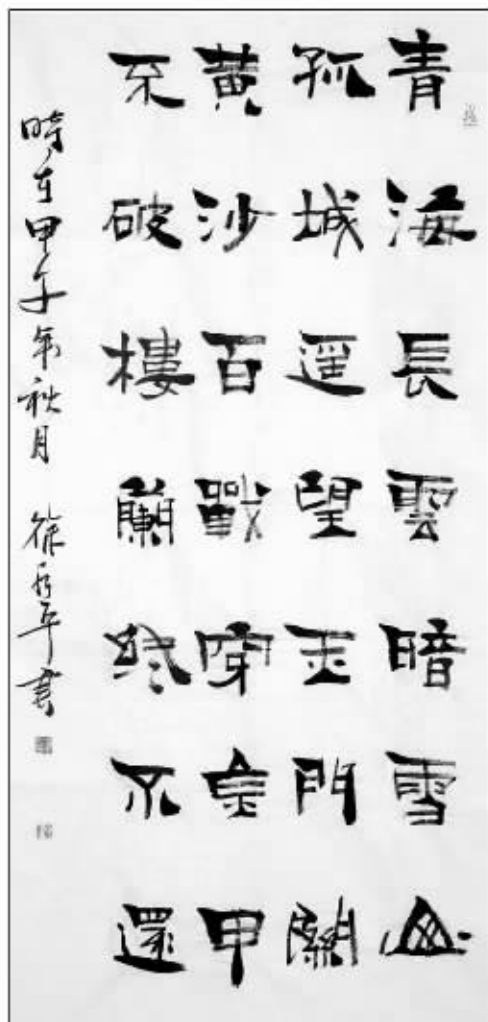 青海長雲暗雪山
孤城遥望玉門關
黄沙百戰穿金甲
不破樓蘭終不還
時在甲午年秋月 徐 平書